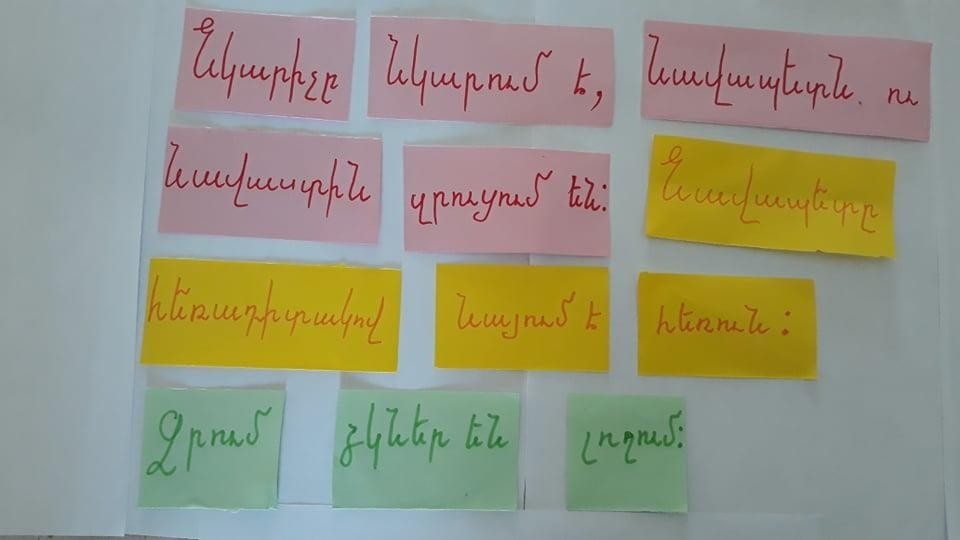 Նկարիչը նկարում է, նավապետն. ու
նավաստին զրուցում են: Նավապետը
հեռադիտակով նայում է հեռուն:
Ջրում ձկներ են լողում: